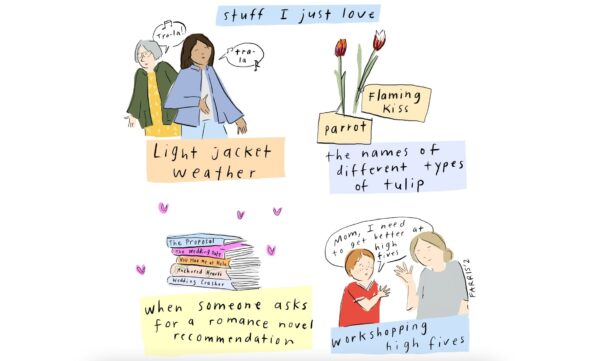 stuff I just love
Tra-la!
tra-
la
Light jacket
weather
Flaming
Kiss
parrot
the names of
different types
of tulip
The Proposal
The Wedding Date
You Had Me at Hola
Anchored Hearts
Wedding Crasher
when someone asks
for a romance novel
recommendation
Mom, I need
to get better at
high
fives
FARRIS'2
workshopping
high fives